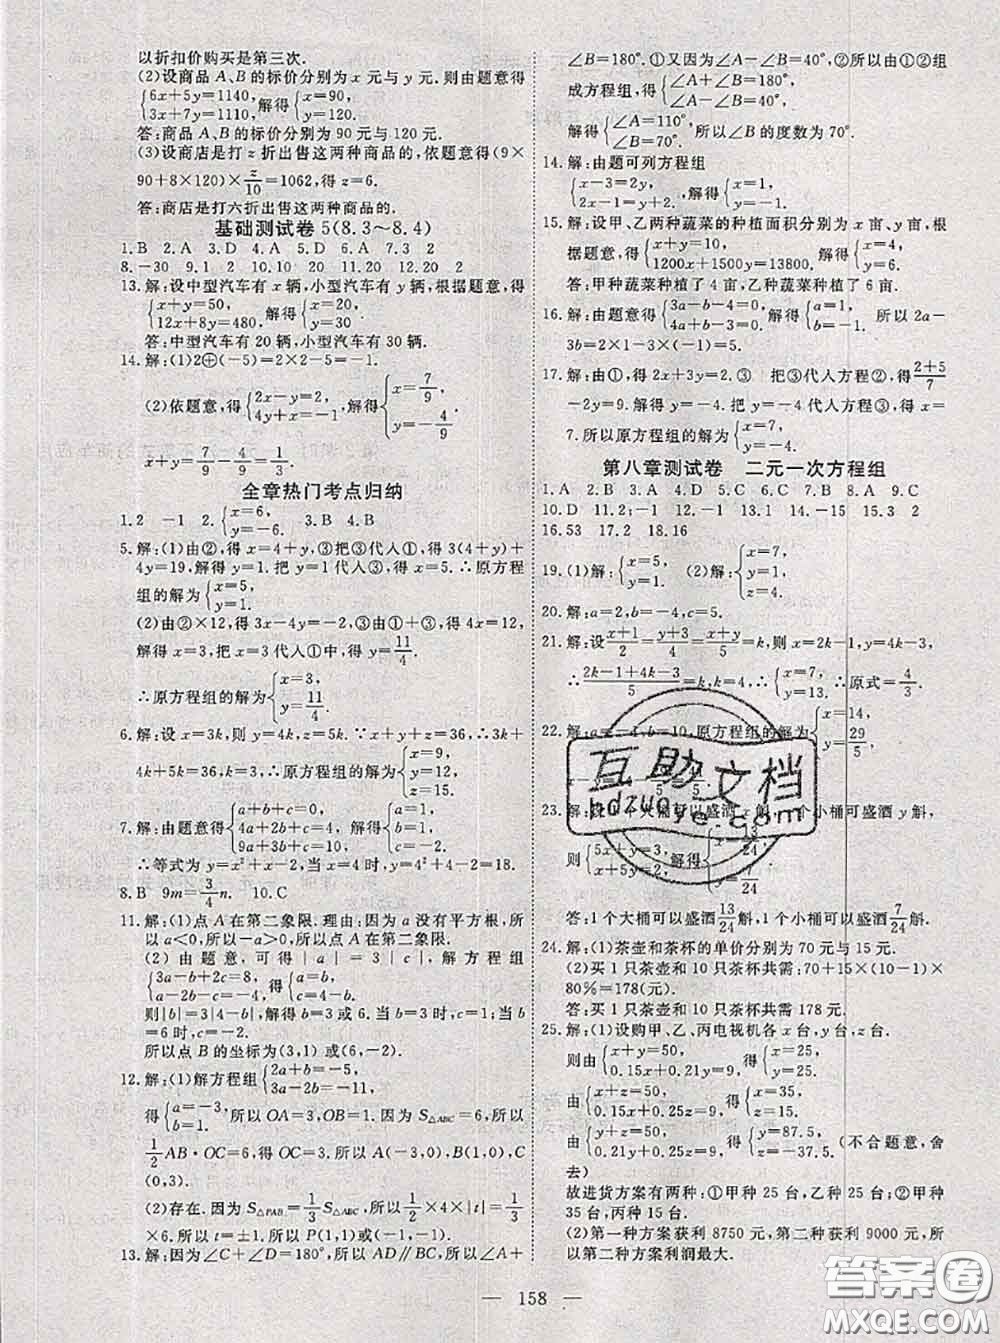 以折扣价购买是第三次.
(2)设商品 A、B 的标价分别为 x 元与 y 元. 则由题意得
{6x+5y=1140, 3x+7y=1110, 解得{x=90, y=120.
答:商品 A、B 的标价分别为 90 元与 120 元.
(3)设商店是打 z 折出售这两种商品的,依题意得(9×
90+8×120)×z/10=1062,得 z=6.
答:商店是打六折出售这两种商品的.
基础测试卷 5(8.3~8.4)
1.B 2.A 3.D 4.A 5.D 6.A 7.3 2
8.-30 9.1 2 10.10 20 11.20 12.20 2
13.解:设中型汽车有 x 辆,小型汽车有 y 辆,根据题意,得
{x+y=50, 12x+8y=480, 解得{x=20, y=30.
答:中型汽车有 20 辆,小型汽车有 30 辆.
14.解:(1)2⊕(-5)=2×2-5=-1.
(2)依题意,得{2x-y=2, 4y+x=-1, 解得{x=7/9, y=-4/9,
x+y=7/9-4/9=1/3.
全章热门考点归纳
1.2 -1 2.{x=6, y=-6. 3.B 4.B
5.解:(1)由②,得 x=4+y,③把③代人①,得 3(4+y)+
4y=19.解得 y=1.把 y=1 代入③,得 x=5.∴原方程
组的解为{x=5, y=1.
(2)由②×12,得 3x-4y=-2,③由①+③,得 4x=12,
解得 x=3,把 x=3 代人①中,得 y=11/4.
∴原方程组的解为{x=3, y=11/4.
6.解:设 x=3k,则 y=4k,z=5k.∵x+y+z=36,∴3k+
4k+5k=36,k=3.∴原方程组的解为{x=9, y=12, z=15.
7.解:由题意得{a+b+c=0, 4a+2b+c=4, 9a+3b+c=10, 解得{a=1, b=1, c=-2.
∴等式为 y=x²+x-2,当 x=4 时,y=4²+4-2=18.
8.B 9m=3/4n. 10.C
11.解:(1)点 A 在第二象限.理由:因为 a 没有平方根,所
以 a<0,所以-a>0,所以点 A 在第二象限.
(2)由题意,可得|a|=3|c|,解方程组
{3a-b-5c=-1, a-2b-c=-8, 得{a=b-4, c=b-4.
则|b|=3|4-b|,解得 b=3 或6.当 b=3 时,c=1,当 b
=6 时,c=-2.
所以点 B 的坐标为(3,1)或(6,-2).
12.解:(1)解方程组{2a+b=-5, 3a-2b=-11,
得{a=-3, b=1. 所以 OA=3,OB=1.因为 S△ABC=6,所以
1/2AB·OC=6,得 OC=3.所以 A(-3,0),B(1,0),C
(0,3).
(2)存在.因为 S△PAB=1/3S△ABC,所以1/2×4×|t|=1/3×
6,所以 t=±1,所以 P(1,1)或(-1,-1).
13.解:因为∠C+∠D=180°,所以 AD∥BC,所以∠A+
∠B=180°.①又因为∠A-∠B=40°,②所以由①②组
成方程组,得{∠A+∠B=180°, ∠A-∠B=40°,
解得{∠A=110°, ∠B=70°. 所以∠B 的度数为 70°.
14.解:由题可列方程组
{x-3=2y, 2x-1=-y, 解得{x=1, y=-1.
15.解:设甲、乙两种蔬菜的种植面积分别为 x 亩,y 亩,根
据题意,得{x+y=10, 1200x+1500y=13800. 解得{x=4, y=6.
答:甲种蔬菜种植了 4 亩,乙种蔬菜种植了 6 亩.
16.解:由题意得{3a-b-4=0, 4a+b-3=0. 解得{a=1, b=-1. 所以 2a-
3b=2×1-3×(-1)=5.
17.解:由①,得 2x+3y=2.③ 把③代人方程②,得(2+5)/7
-2y=9.解得 y=-4.把 y=-4 代入方程③,得 x=
7.所以原方程组的解为{x=7, y=-4.
第八章测试卷 二元一次方程组
1.A 2.B 3.C 4.B 5.D 6.D 7.B 8.A 9.C
10.D 11.2;-1 12.-1 13.1 14.-15 15.3 2
16.53 17.2 18.16
19.(1)解:{x=5, y=1. (2)解:{x=7, y=1, z=4.
20.解:a=2,b=-4,c=5.
21.解:设(x+1)/2=(y+3)/4=(x+y)/5=k,则 x=2k-1,y=4k-3,
∴(2k-1+4k-3)/5=k,k=4.∴{x=7, y=13. ∴原式=4/3.
22.解:a=4,b=10,原方程组的解为{x=14, y=29/5.
23.解:设1个大桶可以盛酒 x 斛,1 个小桶可盛酒 y 斛,
则{5x+y=3, x+5y=2, 解得{x=13/24, y=7/24
答:1 个大桶可以盛酒13/24斛,1 个小桶可盛酒7/24斛.
24.解:(1)茶壶和茶杯的单价分别为 70 元与 15 元.
(2)买 1 只茶壶和 10 只茶杯共需:70+15×(10-1)×
80%=178(元).
答:买 1 只茶壶和 10 只茶杯共需 178 元.
25.解:(1)设购甲、乙、丙电视机各 x 台,y 台,z 台.
则由{x+y=50, 0.15x+0.21y=9, 得{x=25, y=25,
由{x+z=50, 0.15x+0.25z=9, 得{x=35, z=15,
由{y+z=50, 0.21y+0.25z=9, 得{y=87.5, z=-37.5. (不合题意,舍
去)
故进货方案有两种:①甲种 25 台,乙种 25 台;②甲种
35 台,丙种 15 台.
(2)第一种方案获利 8750 元,第二种获利 9000 元,所
以第二种方案利润最大.
158
互助文档
hdzuoye.com
答案圈
MXQE.COM